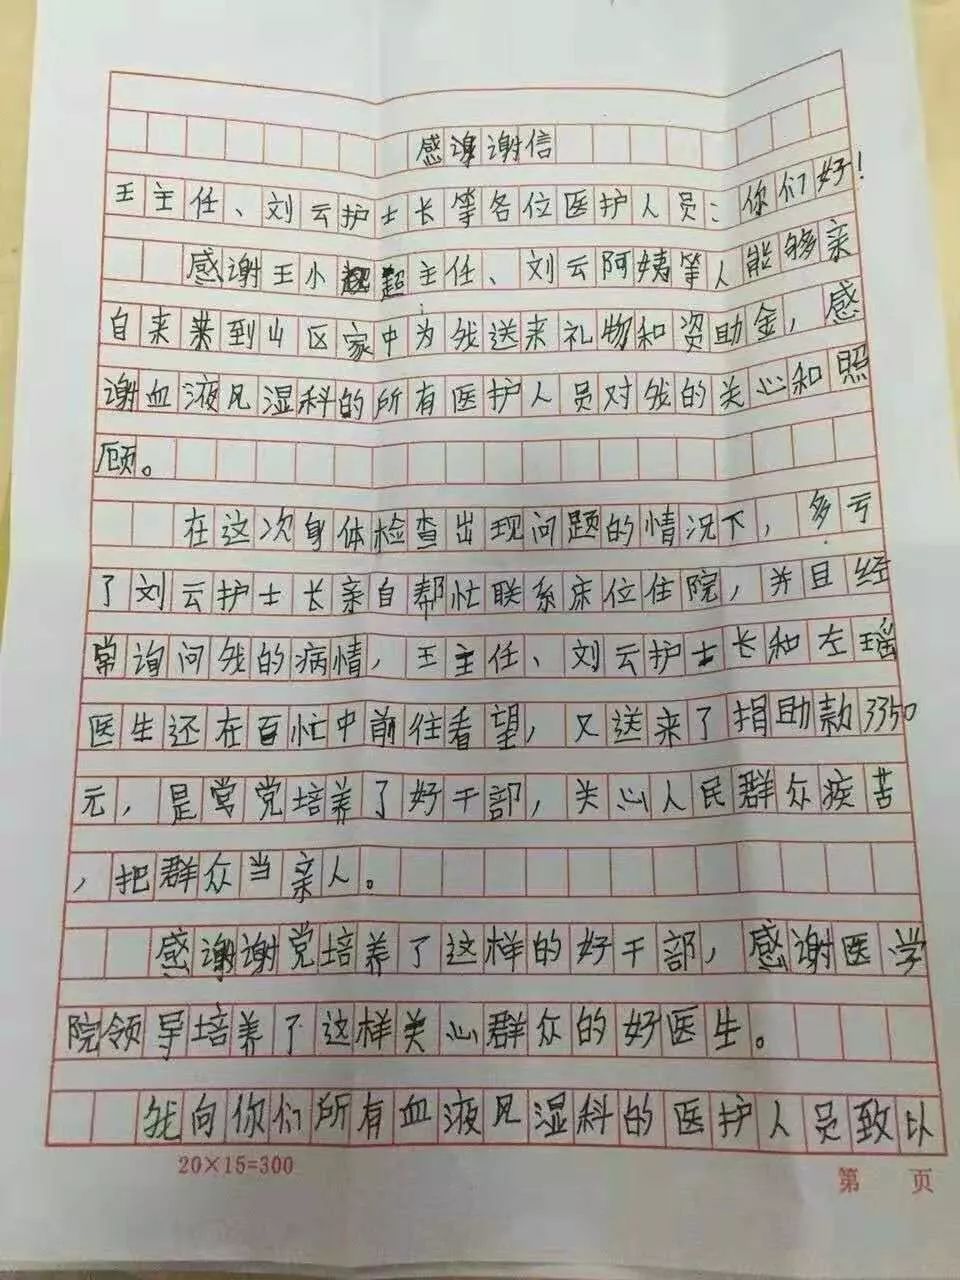 感谢谢信
王主任、刘云护士长等各位医护人员：你们好！
感谢王小超主任、刘云阿姨等人能够亲
自来来到山区家中为我送来礼物和资助金，感
谢血液风湿科的所有医护人员对我的关心和照
顾。
在这次身体检查出现问题的情况下，多亏
了刘云护士长亲自帮忙联系床位住院，并且经
常询问我的病情，王主任、刘云护士长和左瑶
医生还在百忙中前往看望，又送来了捐助款3350
元，是党培养了好干部，关心人民群众疾苦
，把群众当亲人。
感谢谢党培养了这样的好干部，感谢医学
院领导培养了这样关心群众的好医生。
我向你们所有血液风湿科的医护人员致以
20×15=300
第 页